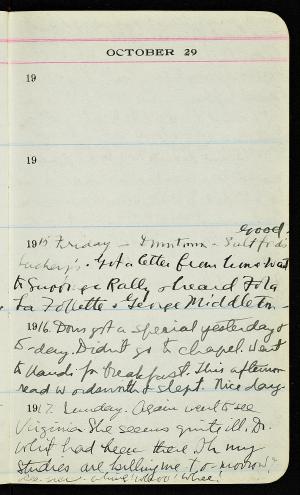 OCTOBER 29
19
19
Good.
1915 Friday - Downtown -
. Got a letter from home. Went
to Suffrage Rally & heard Fola
La Follette & George Middleton -
1916. Dons got a special yesterday &
to-day. Didn't go to chapel. Went
to Hands for breakfast. This afternoon
read Wordsworth & slept. Nice day.
1917. Monday. Again went to see
Virginia. She seems quite ill. Dr.
had been there. Oh my
studies are killing me. To-morrow?